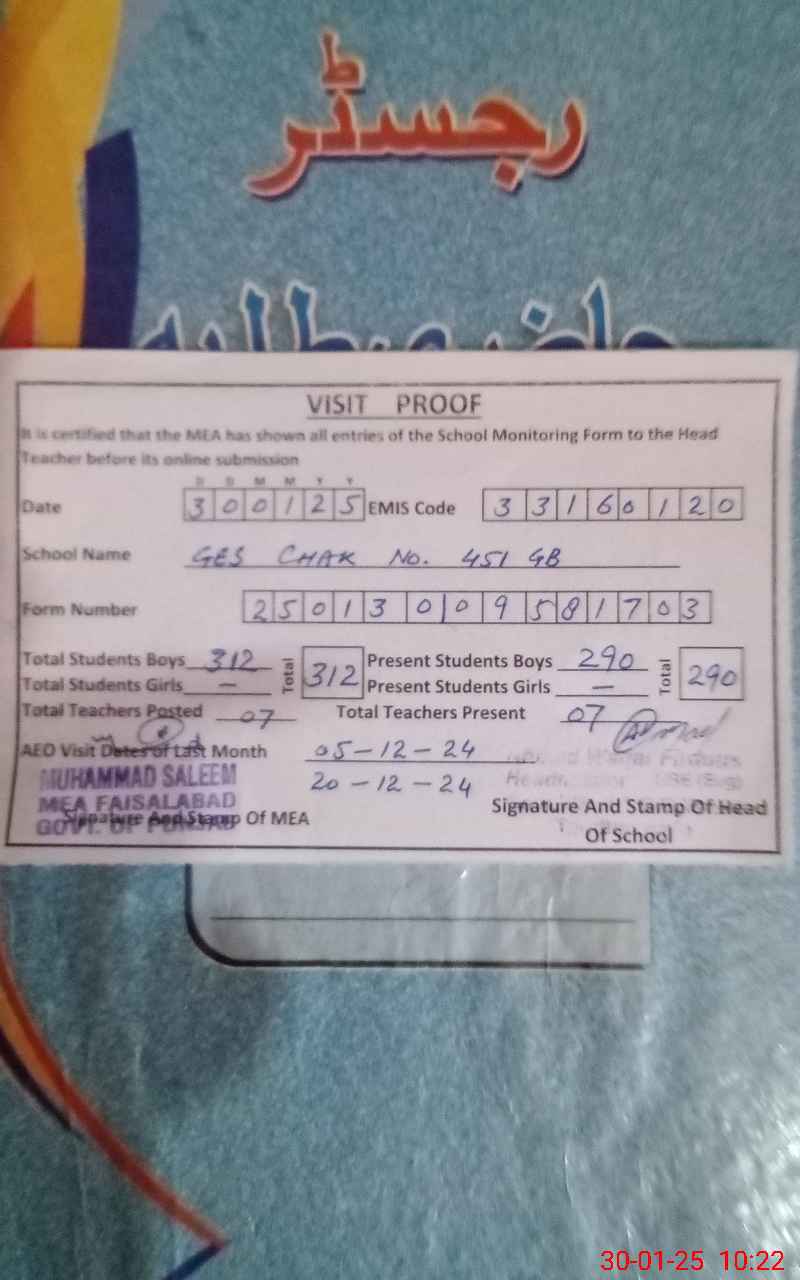 رجسٹر
حاضری طلبہ
VISIT PROOF
It is certified that the MEA has shown all entries of the School Monitoring Form to the Head
Teacher before its online submission
D D M M Y Y
Date 3 0 0 1 2 5 EMIS Code 3 3 1 6 0 1 2 0
School Name GES CHAK No. 451 GB
Form Number 2 5 0 1 3 0 0 9 5 8 1 7 0 3
Total Students Boys 312 Total 312 Present Students Boys 290 Total 290
Total Students Girls — Present Students Girls —
Total Teachers Posted 07 Total Teachers Present 07
AEO Visit Dates of Last Month 05-12-24
20-12-24
MUHAMMAD SALEEM
MEA FAISALABAD
GOVT. OF PUNJAB
Signature And Stamp Of MEA
Signature And Stamp Of Head
Of School
30-01-25 10:22